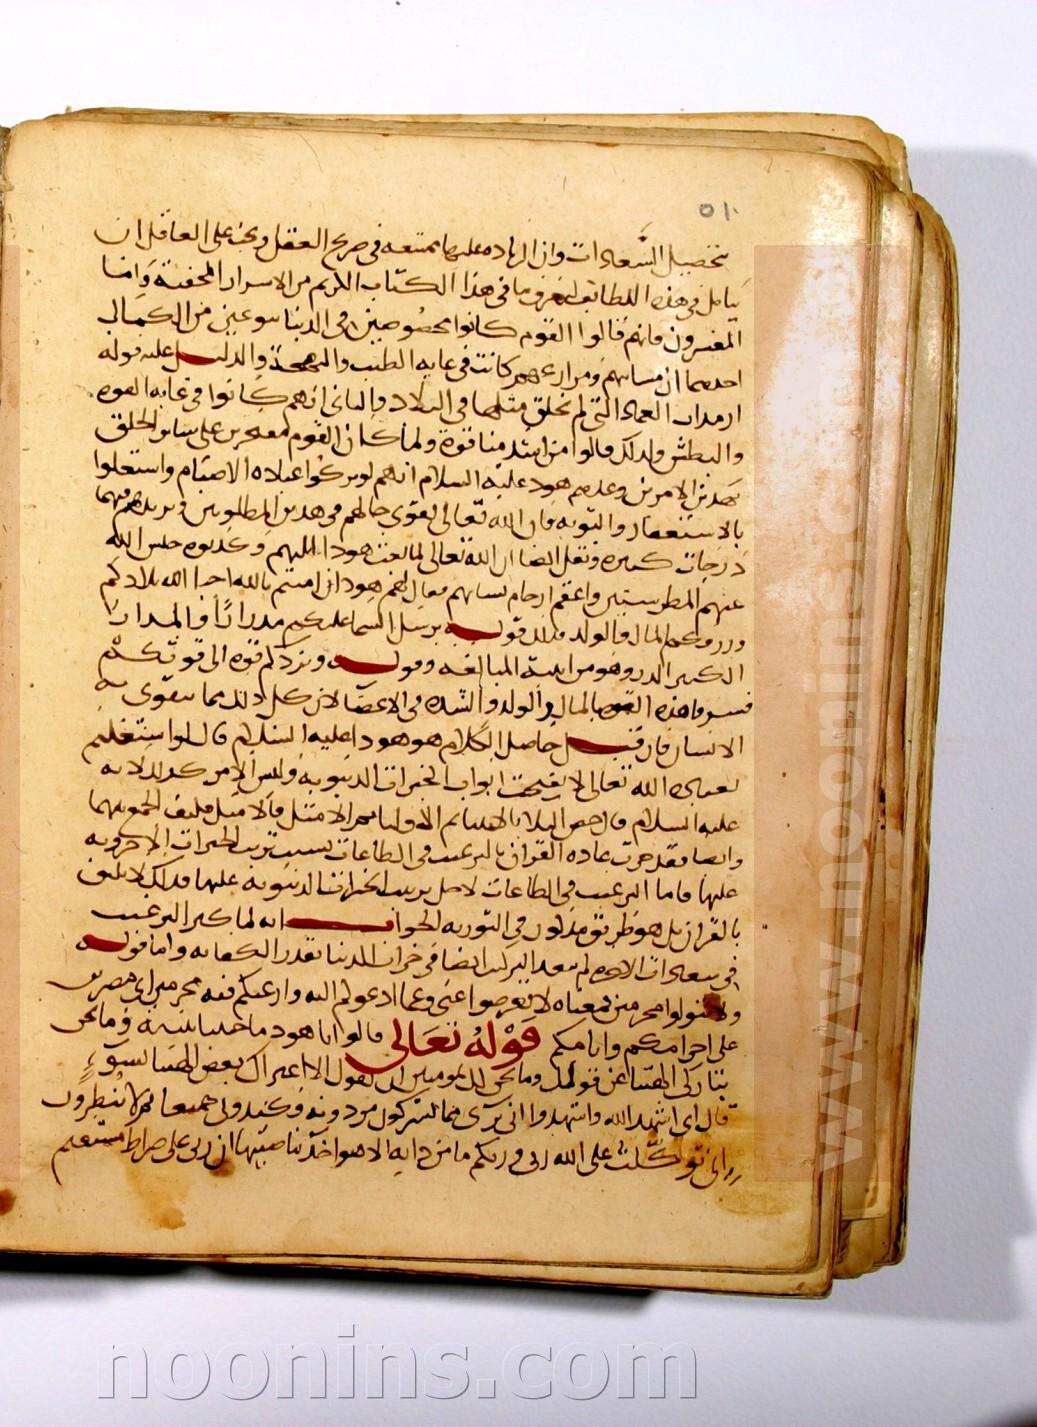 ٥١٠
بتحصيل السعادات وان الزياده عليها ممتنعه في صريح العقل ويجب على العاقل ان
يتامل في هذه اللطايف ليعرف ما في هذا الكتاب الكريم من الاسرار المخفية واما
المفسرون فانهم قالوا القوم كانوا مخصوصين في الدنيا بنوعين من الكمال
احدهما ان بساتينهم ومزارعهم كانت في غايه الطيب والبهجة والدليل عليه قوله
ارم ذات العماد التي لم يخلق مثلها في البلاد والثاني انهم كانوا في غاية القوه
والبطش ولذلك قالوا من اشد منا قوة ولما كان القوم مفتخرين على سائر الخلق
بهذين الامرين وعدهم هود عليه السلام انهم لو تركوا عبادة الاصنام واشتغلوا
بالاستغفار والتوبه فان الله تعالى يقوي حالهم في هذين المطلوبين ويزيدهم فيهما
درجات كثيره ونقل ايضا ان الله تعالى لما بعث هودا اليهم وكذبوه حبس الله
عنهم المطر سنين واعقم ارحام نسائهم فقال لهم هود ان امنتم بالله احيا الله بلادكم
ورزقكم المال والولد فذلك قوله يرسل السماء عليكم مدرارا والمدرار
الكثير الدر وهو من ابنية المبالغه وقوله ويزدكم قوة الى قوتكم
ففسروا هذه القوة بالمال والولد والشده في الاعضا لان كل ذلك مما يتقوى به
الانسان فان قيل حاصل الكلام هو هودا عليه السلام قال لو اشتغلتم
بعبادة الله تعالى لانفتحت ابواب الخيرات الدنيوية وليس الامر كذلك لانه
عليه السلام قال خص البلا بالانبيا ثم الاوليا ثم الامثل فالامثل فكيف الجمع بينهما
وايضا فقد جرت عادة القران بالترغيب في الطاعات بسبب ترتيب الخيرات الاخرويه
عليها فاما الترغيب في الطاعات لاجل ترتيب الخيرات الدنيوية عليها فذلك لا يليق
بالقران بل هو طريق مذكور في التوريه الجواب انه لما كثر الترغيب
في سعادات الاخره لم يبعد الترغيب ايضا في خيرات الدنيا بقدر الكفايه واما قوله
ولا تتولوا مجرمين فمعناه لا تعرضوا عني وعما ادعوكم اليه وارغبكم فيه مجرمين اي مصرين
على اجرامكم واثامكم قوله تعالى قالوا يا هود ما جئتنا ببينة وما نحن
بتاركي الهتنا عن قولك وما نحن لك بمومنين ان نقول الا اعتراك بعض الهتنا بسوء
قال اني اشهد الله واشهدوا اني بري مما تشركون من دونه فكيدوني جميعا ثم لا تنظرون
اني توكلت على الله ربي وربكم ما من دابه الا هو اخذ بناصيتها ان ربي على صراط مستقيم
www.noonins.
noonins.com